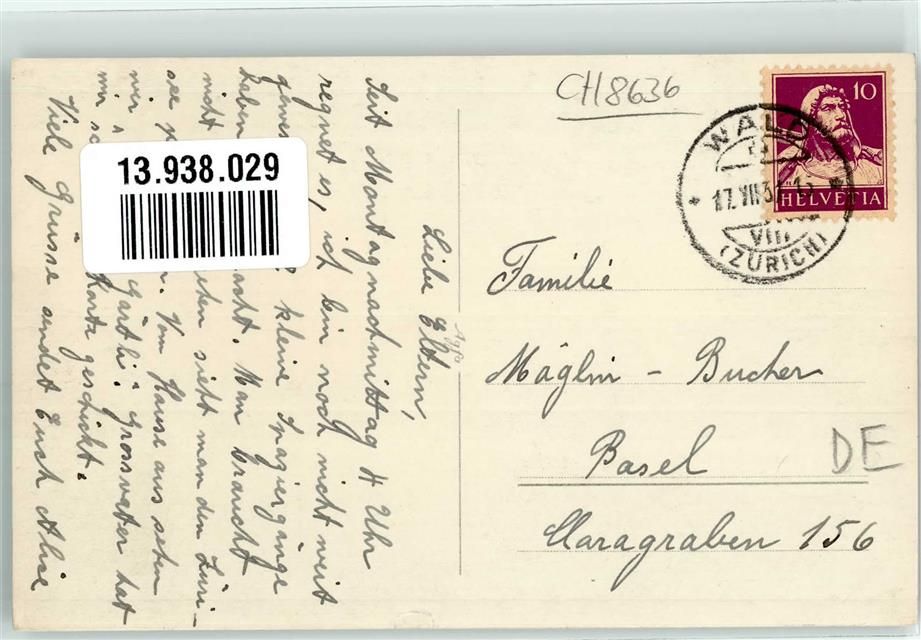 CH8636
WALD
17.VII.3
VIII
(ZÜRICH)
10
HELVETIA
13.938.029
Liebe Eltern,
Seit Montagnachmittag 4 Uhr
regnet es, ich bin noch nicht weit
kleine Spaziergänge
haben Man braucht
nicht sieht man den Züri-
see Vom Hause aus sehen
wir Gärtli. Grossvater hat
mir Karte geschickt.
Viele Grüsse sendet Euch Alice
Familie
Mäglin - Bucher
Basel
Claragraben 156
DE